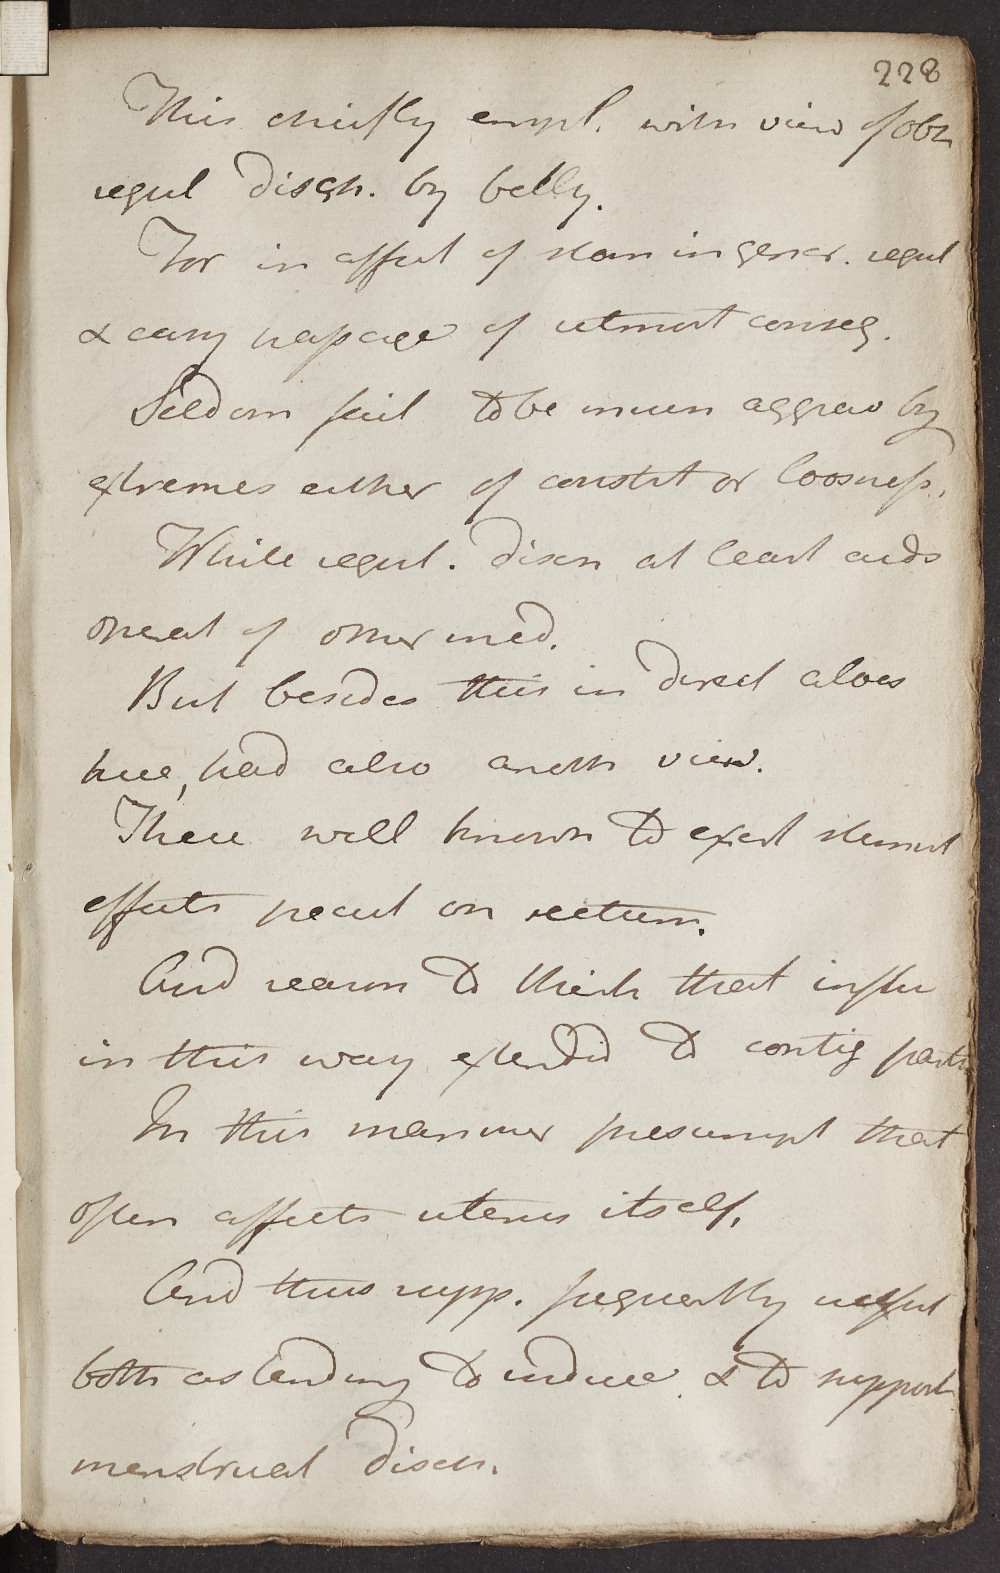 228
This chiefly empl. with view of obt
regul disch. by belly.
For in affect of stom in gener. regul
& easy passage of utmost conseq.
Seldom fail to be much aggrav by
extremes either of constit or loosness.
While regul. disch at least aids
operat of other med.
But besides this in direct aloes
here, had also anoth view.
These well known to exert stimul
effects pecul on rectum.
And reason to think that influ
in this way extended to contig parts
In this manner presumpt that
often affects uterus itself.
And thus supp. frequently useful
both as tending to induce & to support
menstrual disch.